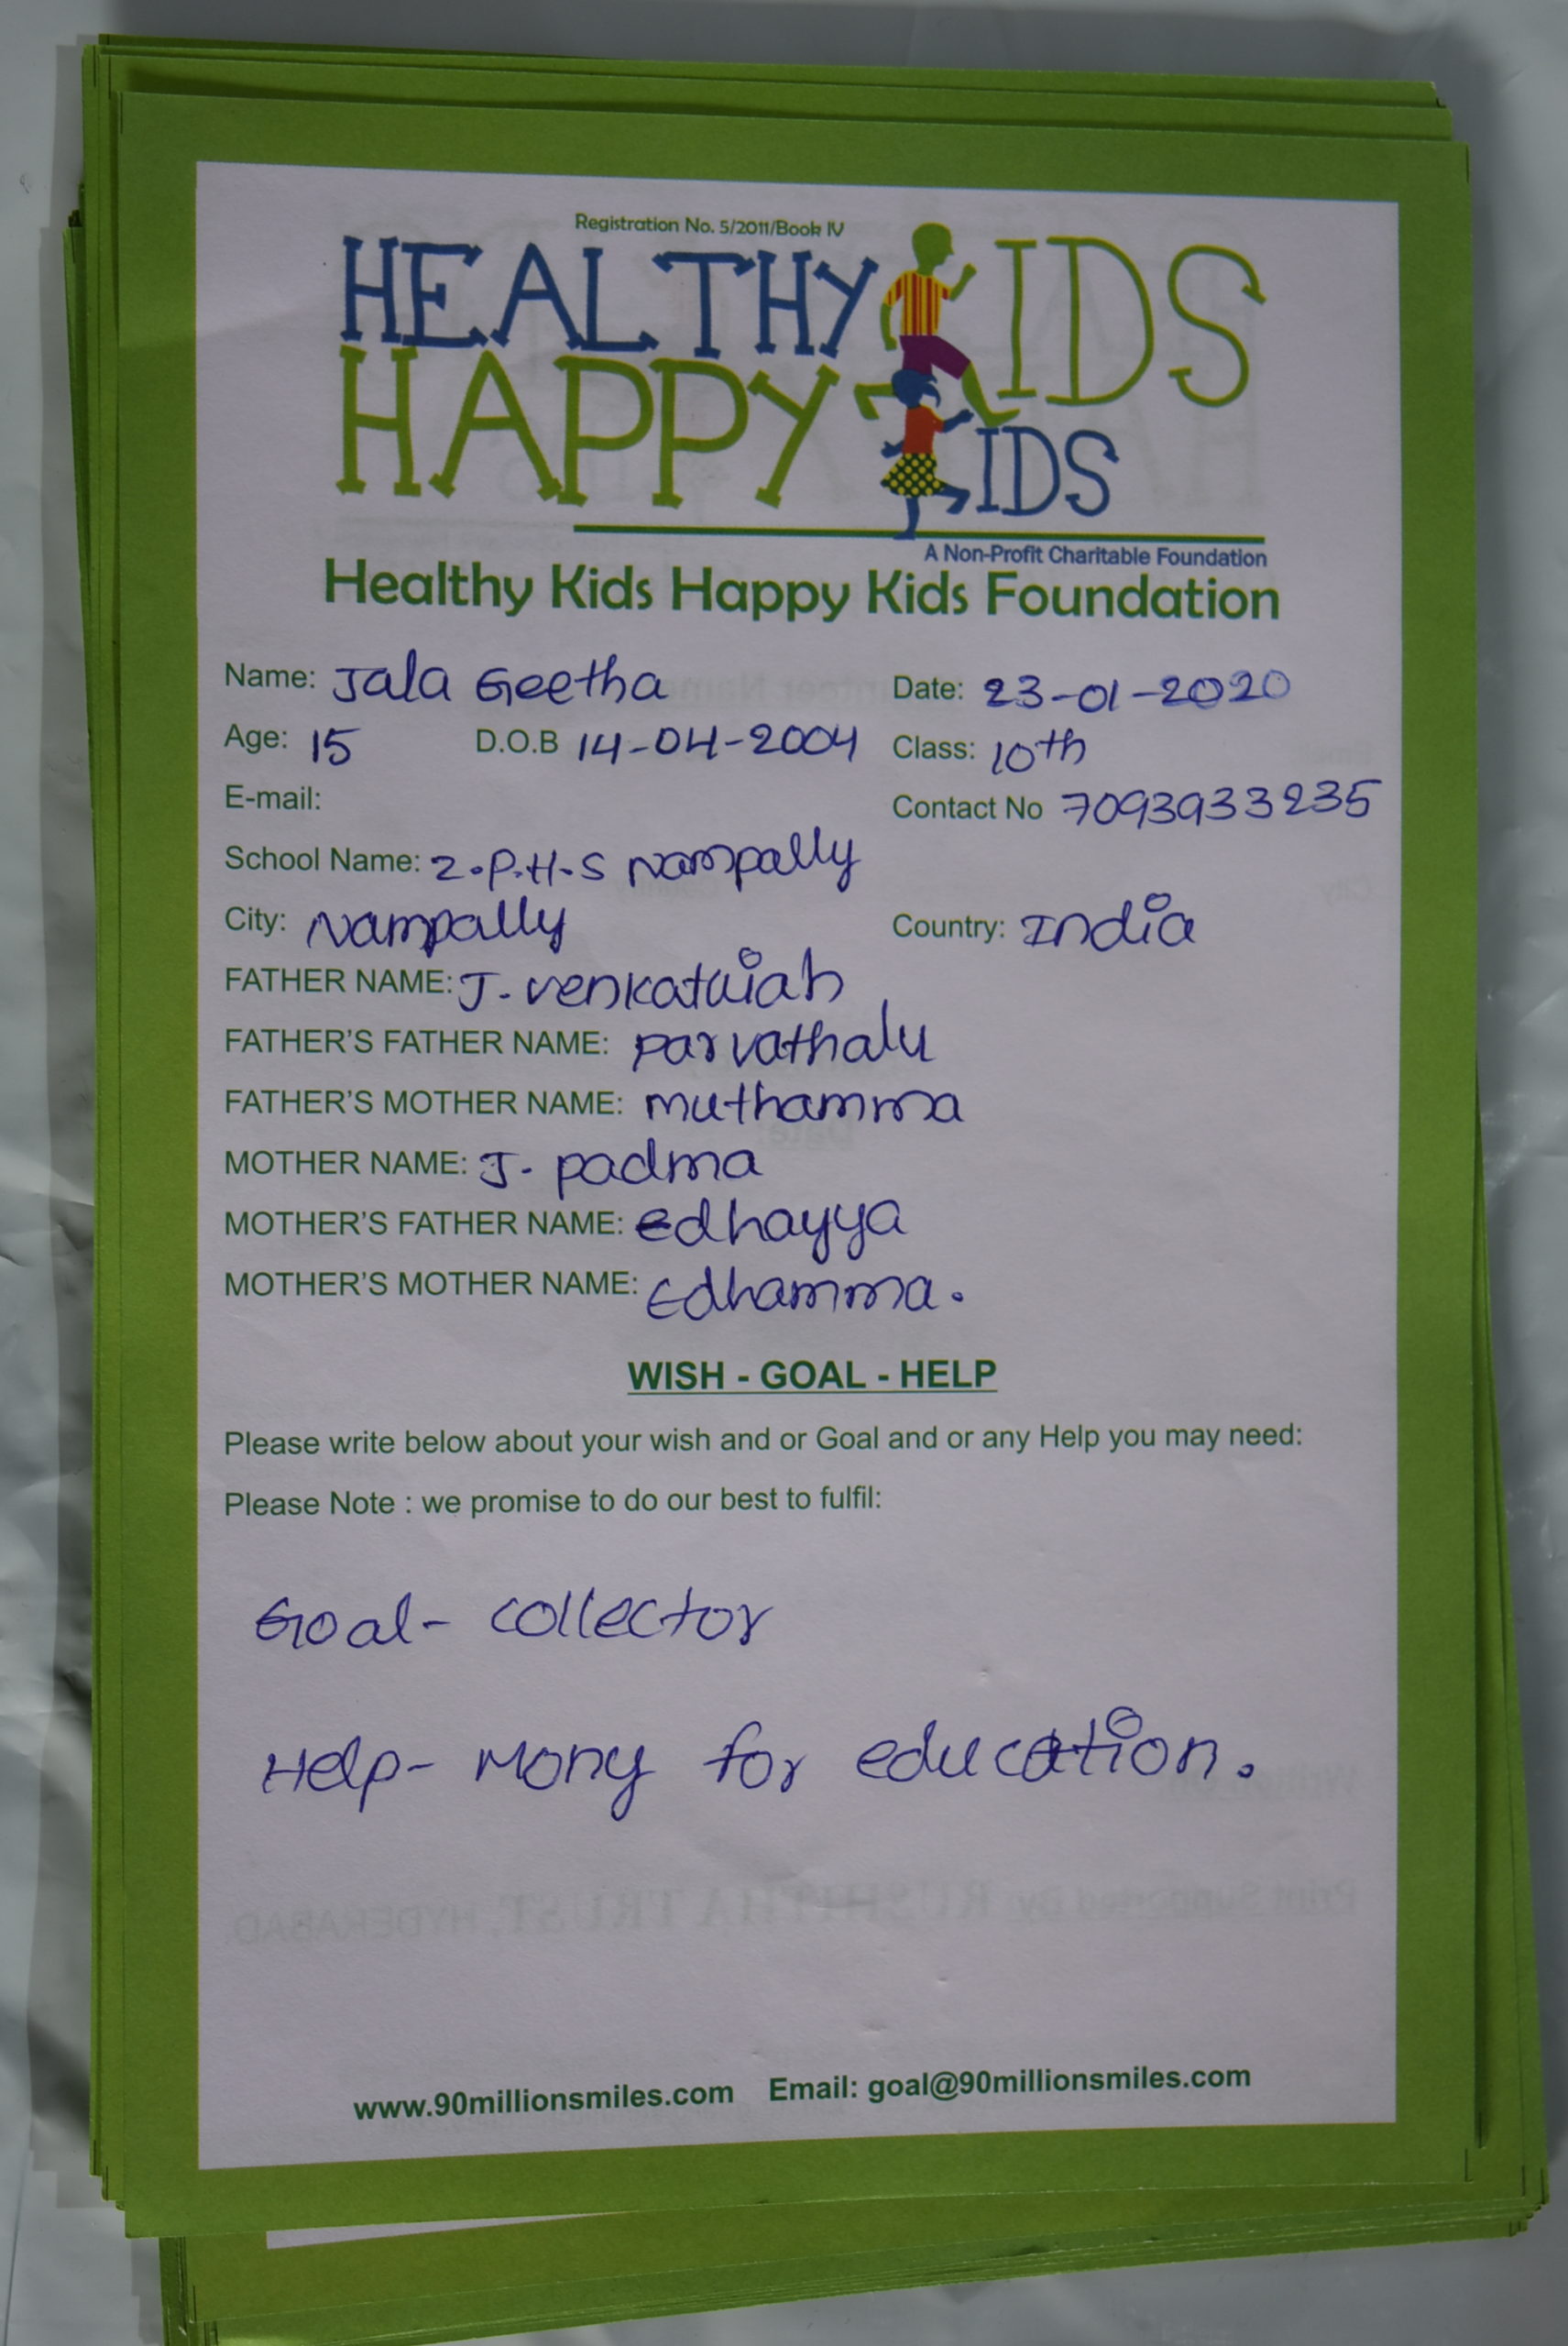 Registration No. 5/2011/Book IV
HEALTHY KIDS
HAPPY KIDS
A Non-Profit Charitable Foundation
Healthy Kids Happy Kids Foundation
Name: Jala Geetha Date: 23-01-2020
Age: 15 D.O.B 14-04-2004 Class: 10th
E-mail: Contact No 7093933235
School Name: Z.P.H.S Nampally
City: Nampally Country: India
FATHER NAME: J. venkataiah
FATHER'S FATHER NAME: parvathalu
FATHER'S MOTHER NAME: muthamma
MOTHER NAME: J. padma
MOTHER'S FATHER NAME: edhayya
MOTHER'S MOTHER NAME: Edhamma.
WISH - GOAL - HELP
Please write below about your wish and or Goal and or any Help you may need:
Please Note : we promise to do our best to fulfil:
Goal- collector
Help- Mony for education.
www.90millionsmiles.com Email: goal@90millionsmiles.com